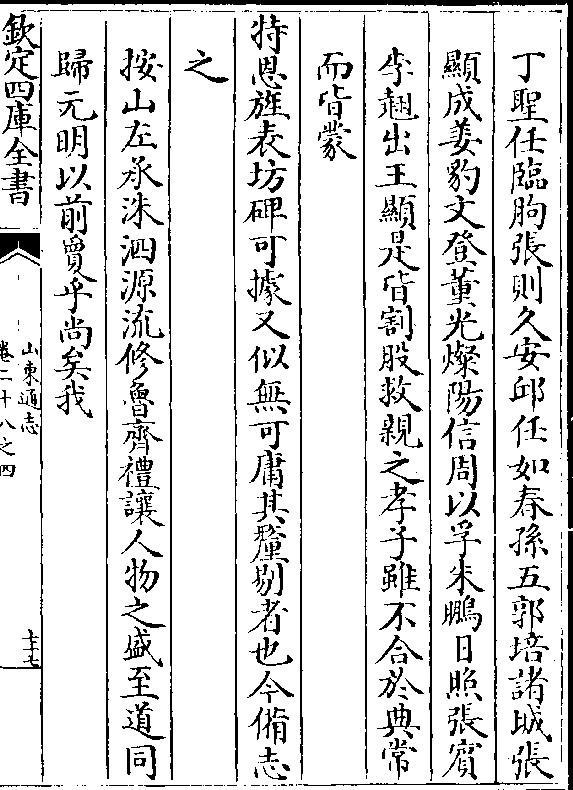 丁聖任臨朐張則久安邱任如春孫五郭培諸城張
顯成姜豹文登董光燦陽信周以孚朱鵬日照張賓
李翹出王顯是皆割股救親之孝子雖不合於典常
而皆蒙
特恩旌表坊碑可據又似無可庸其釐剔者也今備志
之
按山左承洙泗源流修魯齊禮讓人物之盛至道同
歸元明以前夐乎尚矣我
欽定四庫全書
山東通志
卷二十八之四
七十七